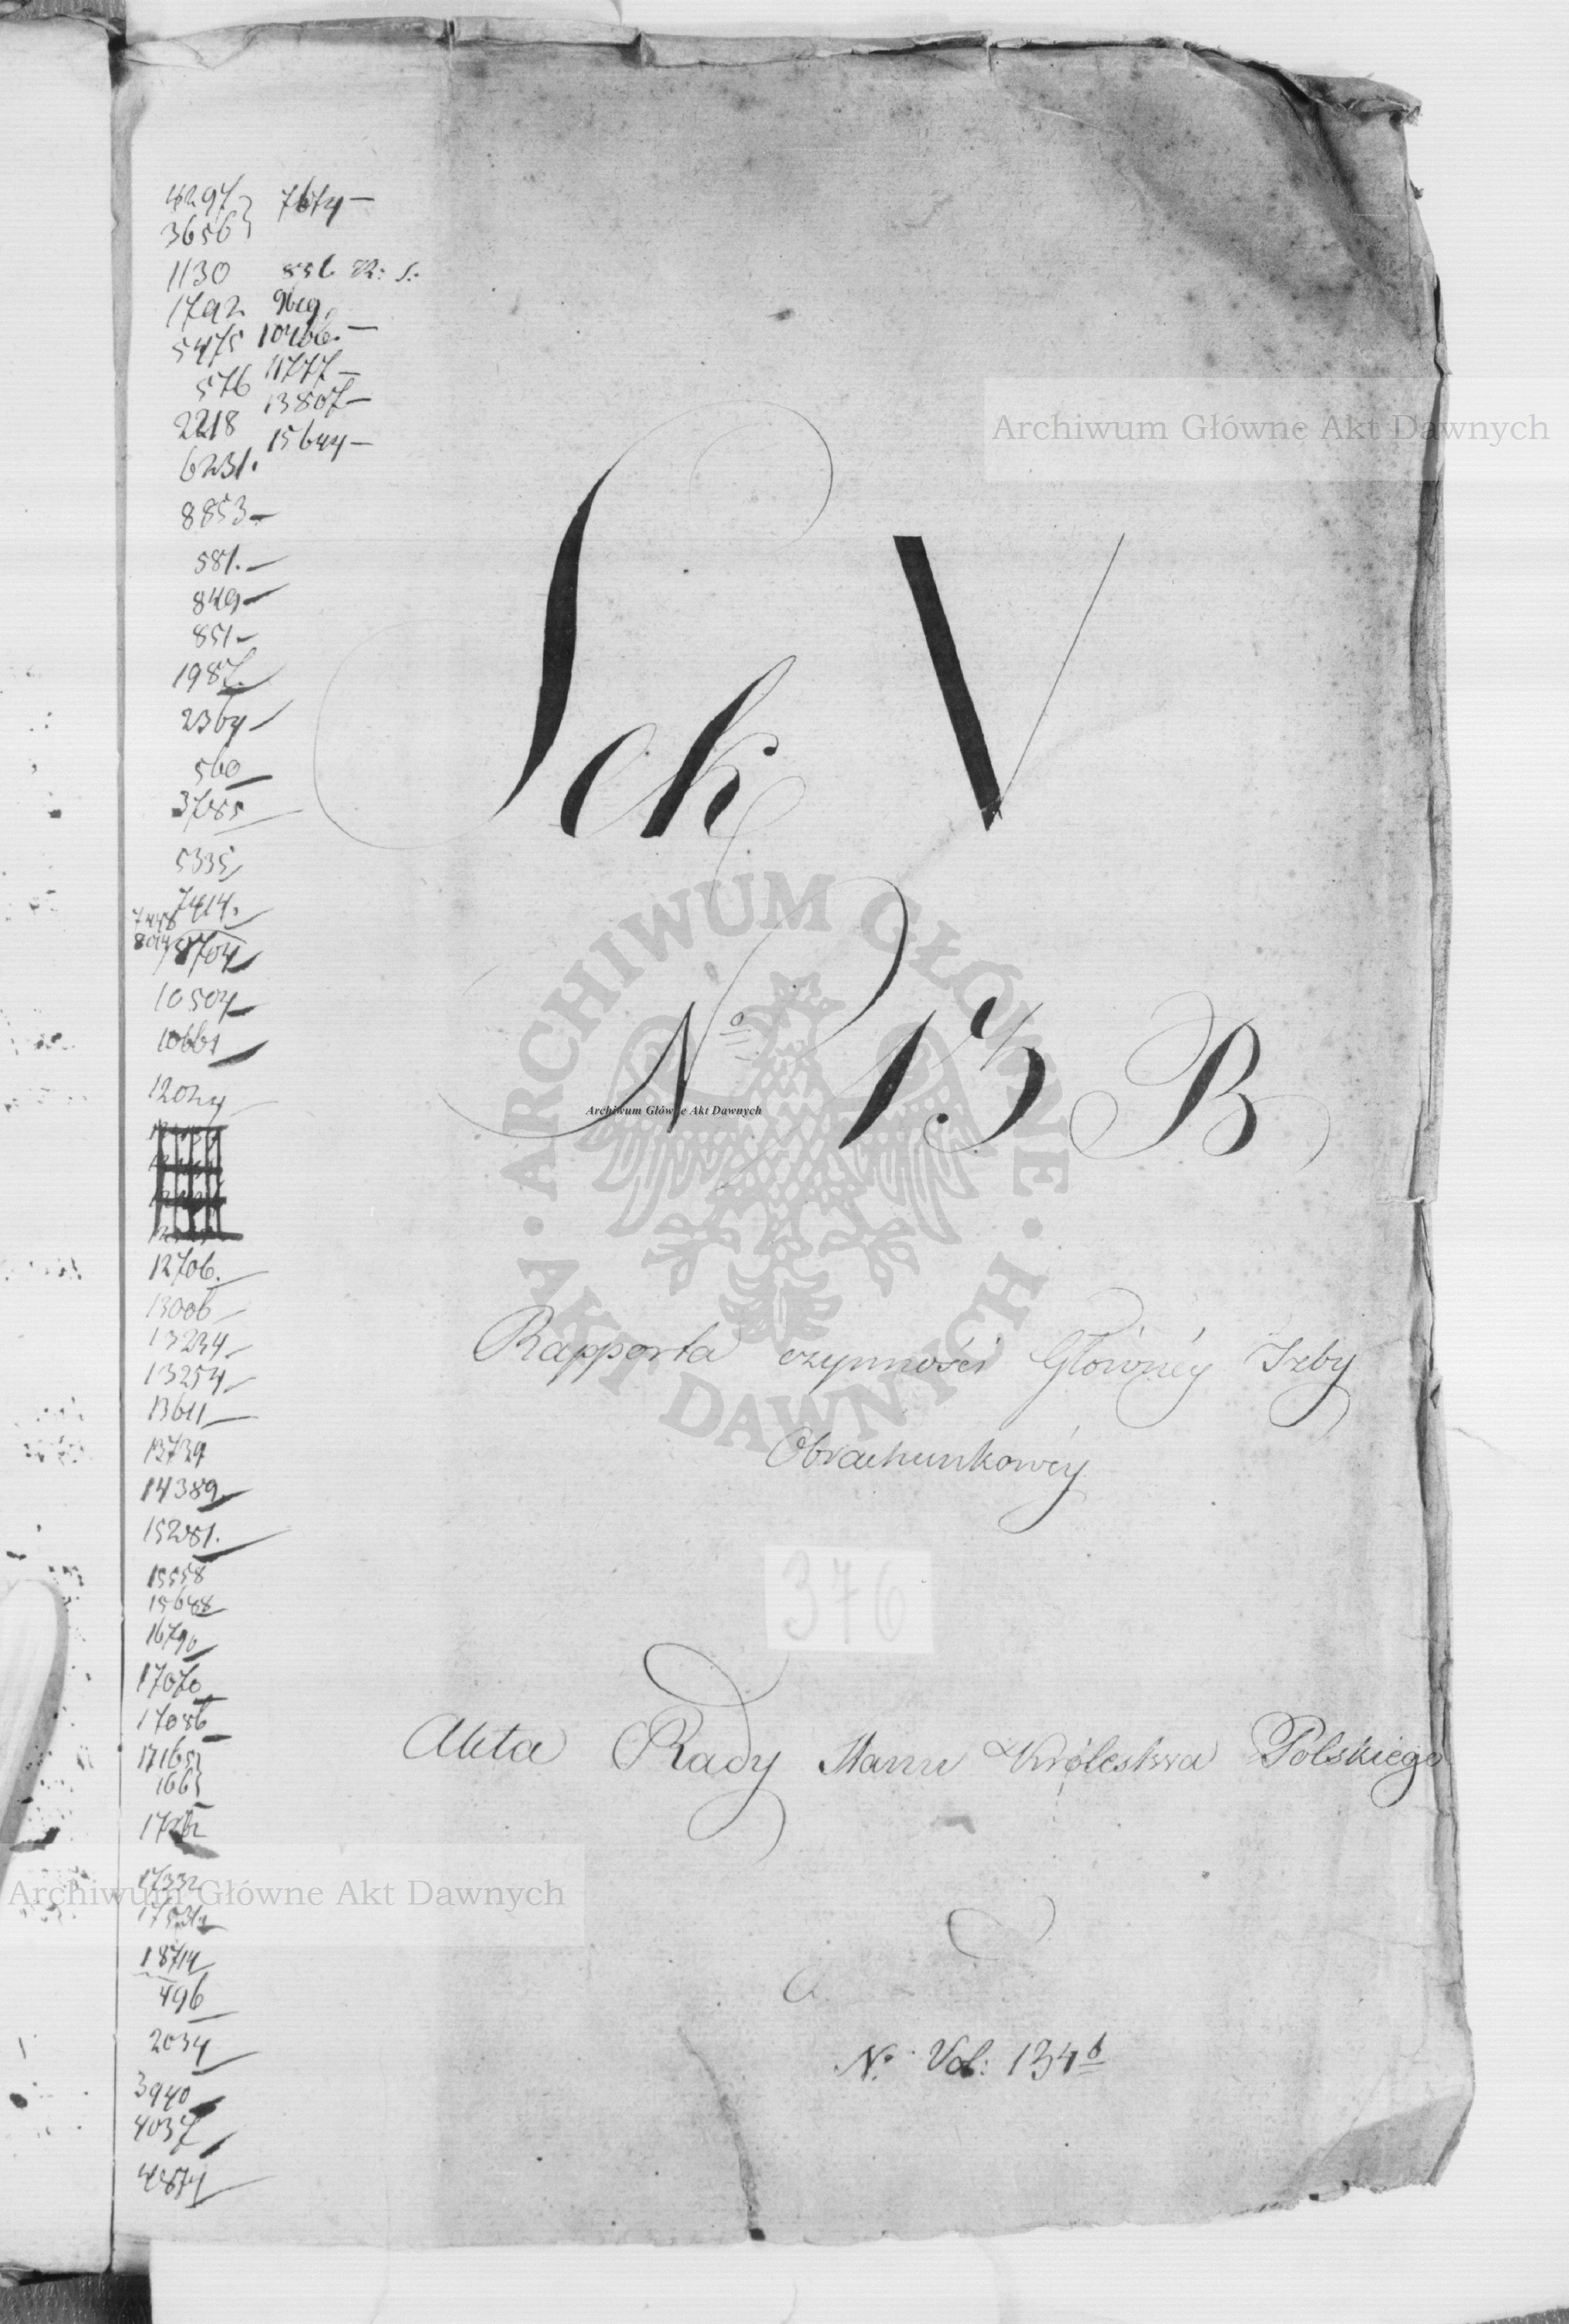 4297
3656
7674 –
1130
856 R: S:
1792
5475
576
11777 –
2218
13807 –
6231.
15644 –
8853 –
581. –
849 –
851 –
1987.
2364 –
560
3785
5335
7414.
7448
8704
10504
10661
12706.
13006 –
13234 –
13254 –
13611 –
13739
14389
15281.
15558
15688
16790
17070
17086
17165
1665
17332
18714
496
2034
3940
4037
4874
Sek V
No 15 B
Rapporta czynności Głównéy Izby
Obrachunkowéy
376
Akta Rady Stanu Królestwa Polskiego
N: Vol: 134 b
Archiwum Główne Akt Dawnych
Archiwum Główne Akt Dawnych
Archiwum Główne Akt Dawnych
ARCHIWUM GŁÓWNE · AKT DAWNYCH ·